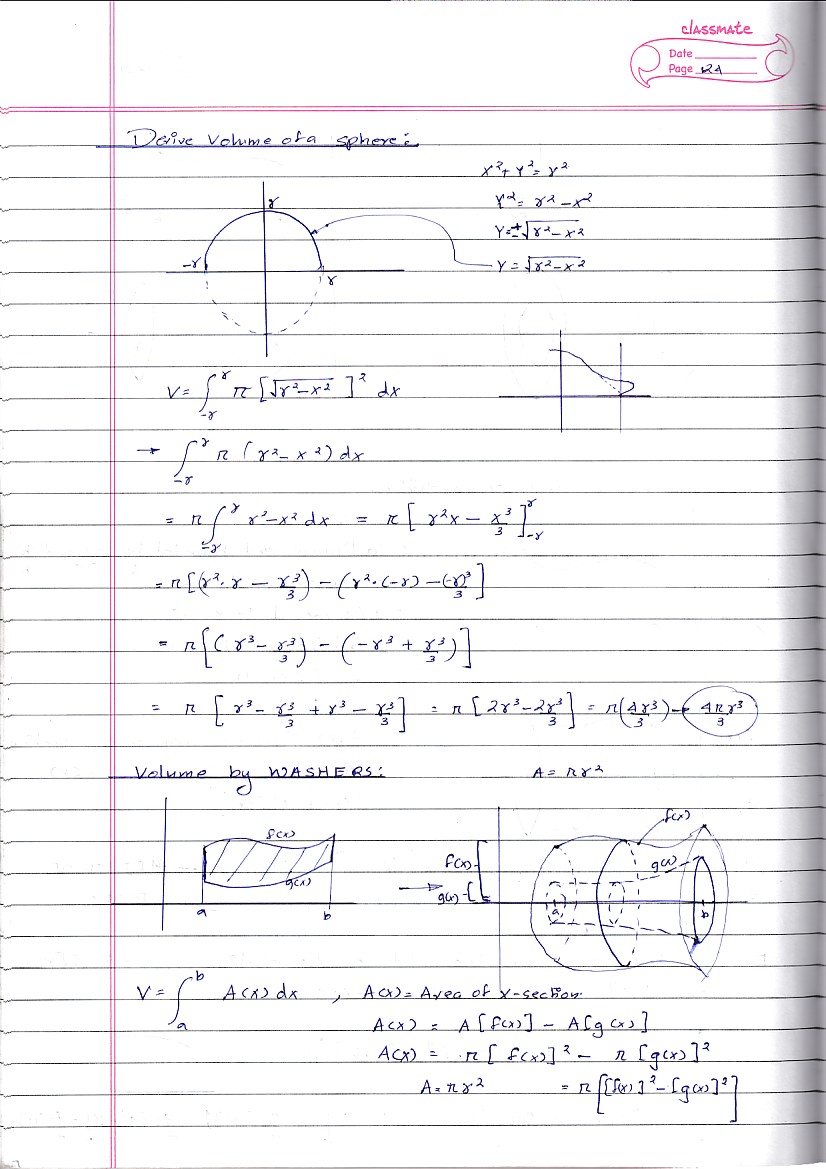 classmate
Date
Page 124
Derive Volume of a sphere:
x² + y² = r²
y² = r² − x²
y = ±√r² − x²
y = √r² − x²
r
−r
r
V = ∫₋ᵣʳ π [√r² − x² ]² dx
→ ∫₋ᵣʳ π (r² − x²) dx
= π ∫₋ᵣʳ r² − x² dx = π [ r²x − x³/3 ]₋ᵣʳ
= π [(r²·r − r³/3) − (r²·(−r) − (−r)³/3 ]
= π [( r³ − r³/3) − (−r³ + r³/3)]
= π [ r³ − r³/3 + r³ − r³/3 ] = π [ 2r³ − 2r³/3 ] = π(4r³/3) → 4πr³/3
Volume by WASHERS:
A = πr²
f(x)
g(x)
a
b
f(x)
g(x)
f(x)
g(x)
a
b
V = ∫ₐᵇ A(x) dx , A(x) = Area of x-section.
A(x) = A[f(x)] − A[g(x)]
A(x) = π[ f(x)]² − π [g(x)]²
A = πr² = π[[f(x)]² − [g(x)]²]